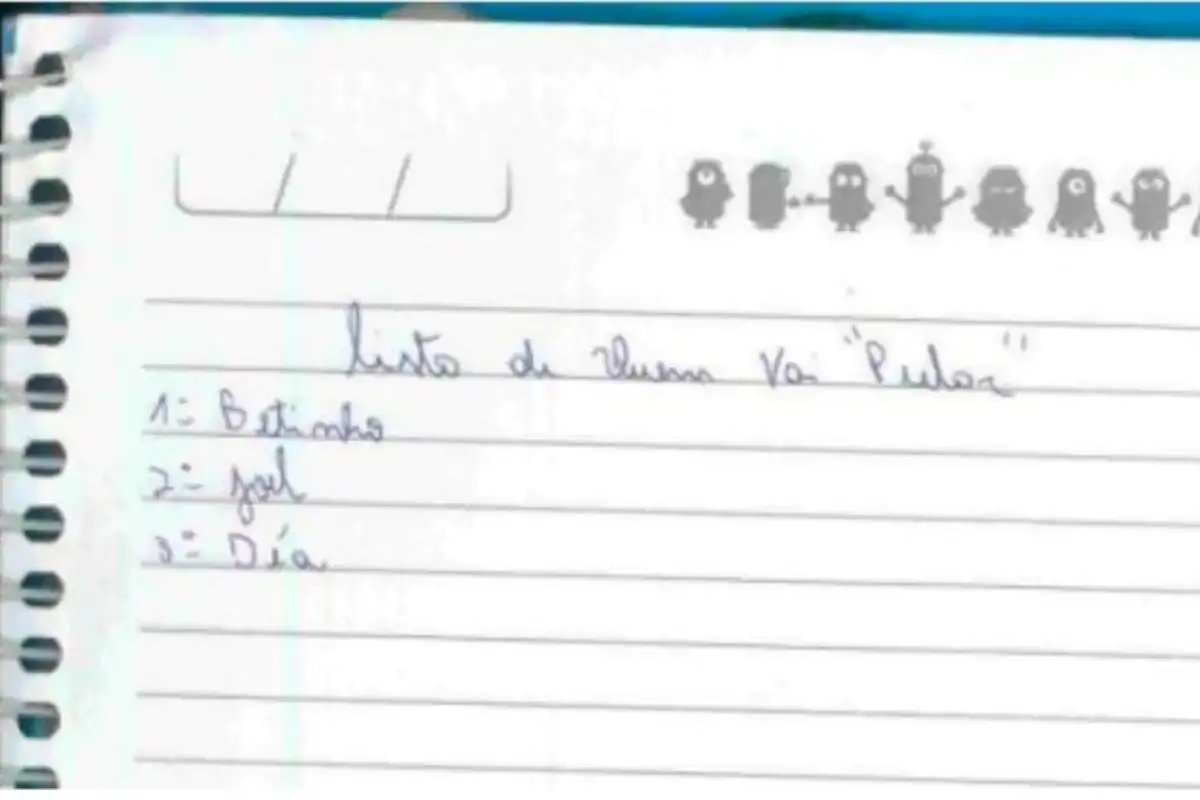 Lista de Quem Vai "Pular"
1= Betinho
2= Joel
3= Día